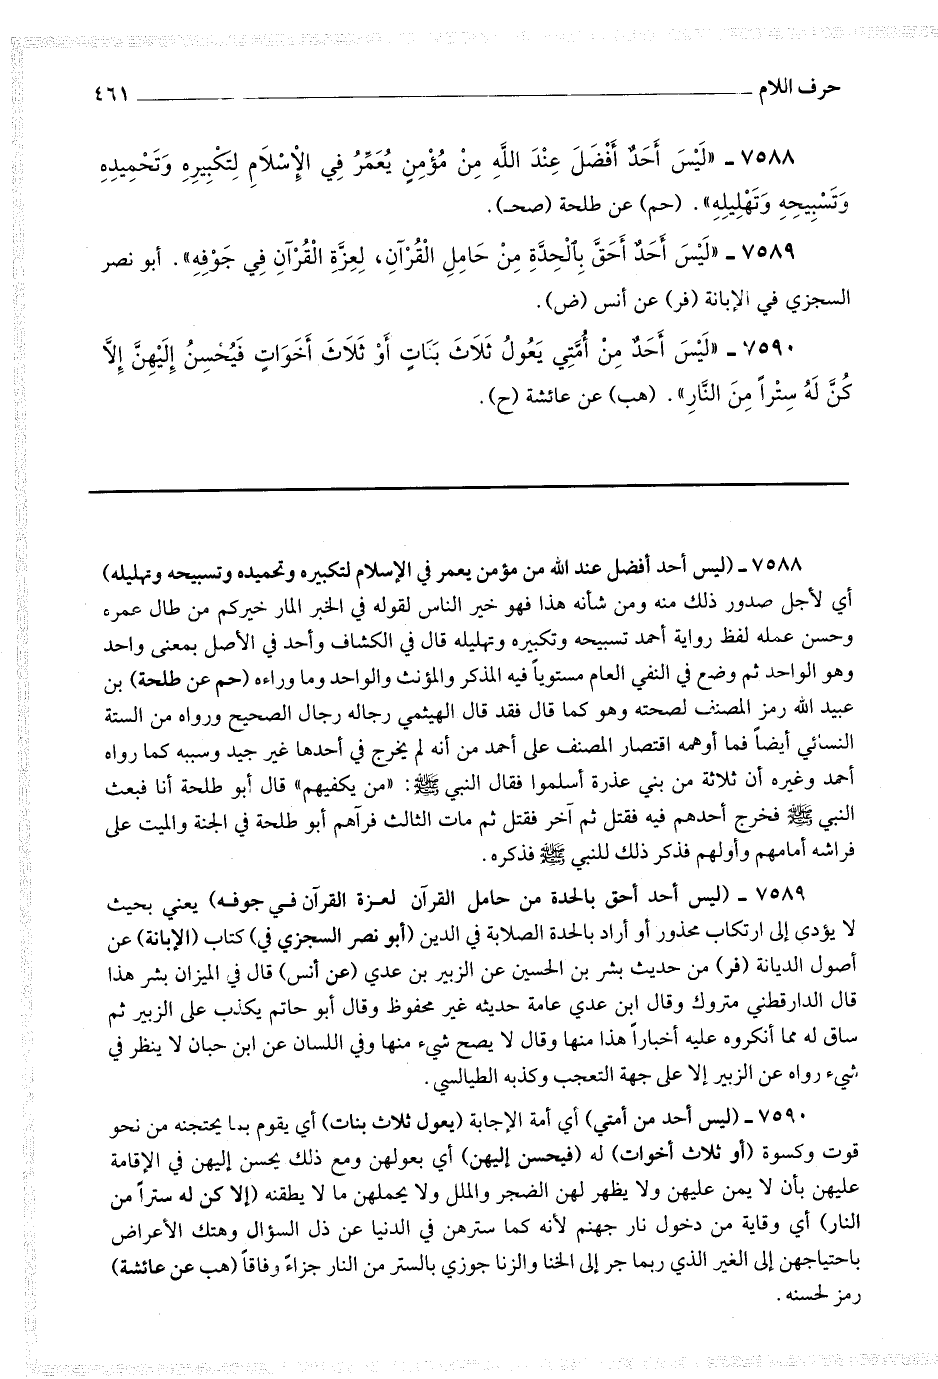 حرف اللام ٤٦١
٧٥٨٨ ـ «لَيْسَ أَحَدٌ أَفْضَلَ عِنْدَ اللَّهِ مِنْ مُؤْمِنٍ يُعَمِّرُ فِي الْإِسْلَامِ لِتَكْبِيرِهِ وَتَحْمِيدِهِ
وَتَسْبِيحِهِ وَتَهْلِيلِهِ». (حم) عن طلحة (صحـ).
٧٥٨٩ ـ «لَيْسَ أَحَدٌ أَحَقَّ بِالْحِدَّةِ مِنْ حَامِلِ الْقُرْآنِ، لِعِزَّةِ الْقُرْآنِ فِي جَوْفِهِ». أبو نصر
السجزي في الإبانة (فر) عن أنس (ض).
٧٥٩٠ ـ «لَيْسَ أَحَدٌ مِنْ أُمَّتِي يَعُولُ ثَلَاثَ بَنَاتٍ أَوْ ثَلَاثَ أَخَوَاتٍ فَيُحْسِنُ إِلَيْهِنَّ إِلَّا
كُنَّ لَهُ سِتْراً مِنَ النَّارِ». (هب) عن عائشة (ح).
٧٥٨٨ ـ (ليس أحد أفضل عند الله من مؤمن يعمر في الإسلام لتكبيره وتحميده وتسبيحه وتهليله)
أي لأجل صدور ذلك منه ومن شأنه هذا فهو خير الناس لقوله في الخبر المار خيركم من طال عمره
وحسن عمله لفظ رواية أحمد تسبيحه وتكبيره وتهليله قال في الكشاف وأحد في الأصل بمعنى واحد
وهو الواحد ثم وضع في النفي العام مستوياً فيه المذكر والمؤنث والواحد وما وراءه (حم عن طلحة) بن
عبيد الله رمز المصنف لصحته وهو كما قال فقد قال الهيثمي رجاله رجال الصحيح ورواه من الستة
النسائي أيضاً فما أوهمه اقتصار المصنف على أحمد من أنه لم يخرج في أحدها غير جيد وسببه كما رواه
أحمد وغيره أن ثلاثة من بني عذرة أسلموا فقال النبي ﷺ: «من يكفيهم» قال أبو طلحة أنا فبعث
النبي ﷺ فخرج أحدهم فيه فقتل ثم آخر فقتل ثم مات الثالث فرآهم أبو طلحة في الجنة والميت على
فراشه أمامهم وأولهم فذكر ذلك للنبي ﷺ فذكره.
٧٥٨٩ ـ (ليس أحد أحق بالحدة من حامل القرآن لعزة القرآن في جوفه) يعني بحيث
لا يؤدي إلى ارتكاب محذور أو أراد بالحدة الصلابة في الدين (أبو نصر السجزي في) كتاب (الإبانة) عن
أصول الديانة (فر) من حديث بشر بن الحسين عن الزبير بن عدي (عن أنس) قال في الميزان بشر هذا
قال الدارقطني متروك وقال ابن عدي عامة حديثه غير محفوظ وقال أبو حاتم يكذب على الزبير ثم
ساق له مما أنكروه عليه أخباراً هذا منها وقال لا يصح شيء منها وفي اللسان عن ابن حبان لا ينظر في
شيء رواه عن الزبير إلا على جهة التعجب وكذبه الطيالسي.
٧٥٩٠ ـ (ليس أحد من أمتي) أي أمة الإجابة (يعول ثلاث بنات) أي يقوم بما يحتجنه من نحو
قوت وكسوة (أو ثلاث أخوات) له (فيحسن إليهن) أي بعولهن ومع ذلك يحسن إليهن في الإقامة
عليهن بأن لا يمن عليهن ولا يظهر لهن الضجر والملل ولا يحملهن ما لا يطقنه (إلا كن له ستراً من
النار) أي وقاية من دخول نار جهنم لأنه كما سترهن في الدنيا عن ذل السؤال وهتك الأعراض
باحتياجهن إلى الغير الذي ربما جر إلى الخنا والزنا جوزي بالستر من النار جزاءً وفاقاً (هب عن عائشة)
رمز لحسنه.